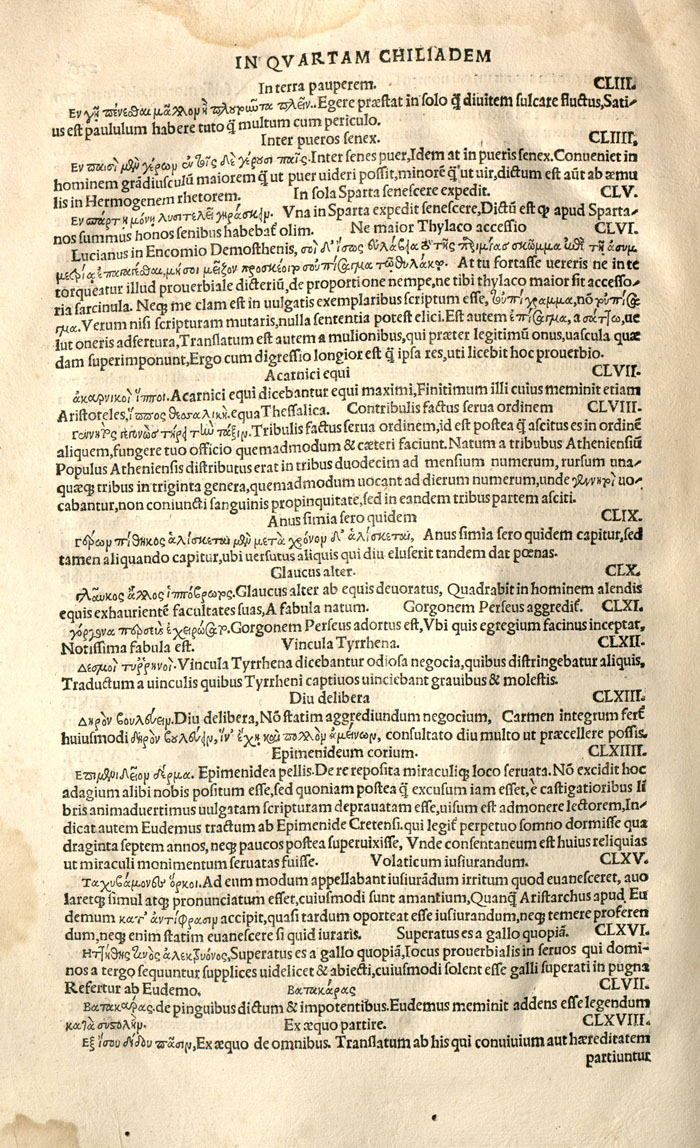 IN QVARTAM CHILIADEM
In terra pauperem. CLIII.
Εν γῇ πένεσθαι μᾶλλον ἢ πλουτοῦντα πλεῖν. Egere præstat in solo ꝙ̃ diuitem sulcare fluctus, Sati⸗
us est paululum habere tuto ꝙ̃ multum cum periculo.
Inter pueros senex. CLIIII.
Εν παισὶ μὲν γέρων ἐν τοῖς δὲ γέρουσι παῖς. Inter senes puer, Idem at in pueris senex. Conueniet in
hominem grādiusculū maiorem ꝙ̃ ut puer uideri possit, minorē ꝙ̃ ut uir, dictum est aūt ab æmu
lis in Hermogenem rhetorem. In sola Sparta senescere expedit. CLV.
Εν σπάρτῃ μόνῃ λυσιτελεῖ γηράσκειν. Vna in Sparta expedit senescere, Dictū est ꝙ apud Sparta⸗
nos summus honos senibus habebat᷑ olim. Ne maior Thylaco accessio CLVI.
Lucianus in Encomio Demosthenis, σοὶ δ' ἴσως εὐλάβεια τῆς
At tu fortasse uereris ne in te
torqueatur illud prouerbiale dicteriū, de proportione nempe, ne tibi thylaco maior sit accesso⸗
ria sarcinula. Neqꝫ me clam est in uulgatis exemplaribus scriptum esse, τοὐπίγραμμα, nō
Verum nisi scripturam mutaris, nulla sententia potest elici. Est autem ἐπίσαγμα, a σάττω, ue
lut oneris adfertura, Translatum est autem a mulionibus, qui præter legitimū onus, uascula quæ
dam superimponunt, Ergo cum digressio longior est ꝙ̃ ipsa res, uti licebit hoc prouerbio.
Acarnici equi CLVII.
ἀκαρνικοὶ ἵπποι. Acarnici equi dicebantur equi maximi, Finitimum illi cuius meminit etiam
Aristoteles, ἵππος θεσσαλική. equa Thessalica. Contribulis factus serua ordinem CLVIII.
τάξιν. Tribulis factus serua ordinem, id est postea ꝙ̃ ascitus es in ordinē
aliquem, fungere tuo officio quemadmodum & cæteri faciunt. Natum a tribubus Atheniensiū
Populus Atheniensis distributus erat in tribus duodecim ad mensium numerum, rursum una⸗
quæqꝫ tribus in triginta genera, quemadmodum uocant ad dierum numerum, unde uo⸗
cabantur, non coniuncti sanguinis propinquitate, sed in eandem tribus partem asciti.
Anus simia sero quidem CLIX.
γέρων πίθηκος ἁλίσκεται μὲν μετὰ χρόνον δ' ἁλίσκεται, Anus simia sero quidem capitur, sed
tamen aliquando capitur, ubi uersutus aliquis qui diu eluserit tandem dat pœnas.
Glaucus alter. CLX.
γλαῦκος ἄλλος ἱππόβρωτος. Glaucus alter ab equis deuoratus, Quadrabit in hominem alendis
equis exhaurientē facultates suas, A fabula natum. Gorgonem Perseus aggredit᷑. CLXI.
γόργονα περσεὺς ἐχειρώσατο. Gorgonem Perseus adortus est, Vbi quis egregium facinus inceptat,
Notissima fabula est. Vincula Tyrrhena. CLXII.
Δεσμοὶ τυρρηνοί. Vincula Tyrrhena dicebantur odiosa negocia, quibus distringebatur aliquis,
Traductum a uinculis quibus Tyrrheni captiuos uinciebant grauibus & molestis.
Diu delibera CLXIII.
Δηρὸν βουλεύειν. Diu delibera, Nō statim aggrediundum negocium, Carmen integrum fert᷑
huiusmodi δηρὸν βουλεύειν, ἵν' ἔχῃ καὶ πολλὸν ἀμείνων, consultato diu multo ut præcellere possis.
Epimenideum corium. CLXIIII.
Επιμενίδειον δέρμα. Epimenidea pellis. De re reposita miraculiqꝫ loco seruata. Nō excidit hoc
adagium alibi nobis positum esse, sed quoniam postea ꝙ̃ excusum iam esset, e castigatioribus li
bris animaduertimus uulgatam scripturam deprauatam esse, uisum est admonere lectorem, In⸗
dicat autem Eudemus tractum ab Epimenide Cretensi. qui legit᷑ perpetuo somno dormisse qua
draginta septem annos, neqꝫ paucos postea superuixisse, Vnde consentaneum est huius reliquias
ut miraculi monimentum seruatas fuisse. Volaticum iusiurandum. CLXV.
ὅρκοι. Ad eum modum appellabant iusiurādum irritum quod euanesceret, auo
laretqꝫ simul atqꝫ pronunciatum esset, cuiusmodi sunt amantium, Quanꝙ̃ Aristarchus apud Eu
demum κατ' ἀντίφρασιν accipit, quasi tardum oporteat esse iusiurandum, neqꝫ temere proferen
dum, neqꝫ enim statim euanescere si quid iuraris. Superatus es a gallo quopiā. CLXVI.
Ηττήθης τινὸς ἀλεκτρυόνος, Superatus es a gallo quopiā, Iocus prouerbialis in seruos qui domi⸗
nos a tergo sequuntur supplices uidelicet & abiecti, cuiusmodi solent esse galli superati in pugna
Refertur ab Eudemo. Βατακάρας CLVII.
Βατακάρας. de pinguibus dictum & impotentibus. Eudemus meminit addens esse legendum
κατὰ συστολήν. Ex æquo partire. CLXVIII.
Εξ ἴσου δίδου πᾶσιν, Ex æquo de omnibus. Translatum ab his qui conuiuium aut hæreditatem
partiuntur